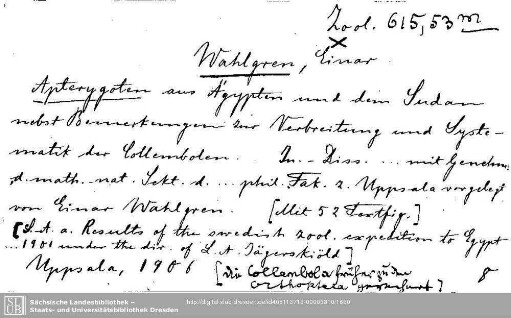 Zool. 615,53 m
Wahlgren, Einar
Apterygoten aus Ägypten und dem Sudan
nebst Bemerkungen zur Verbreitung und Syste-
matik der Collembolen. In.-Diss. ... mit Genehm.
d. math.-nat. Sekt. d. ... phil. Fak. z. Uppsala vorgelegt
von Einar Wahlgren. [Mit 52 Textfig.]
[S. A. a. Results of the swedish zool. expedition to Egypt
... 1901 under the dir. of L. A. Jägerskiöld]
Uppsala, 1906 [die Collembola früher zu den 8
Orthoptera gerechnet]
SLUB
Sächsische Landesbibliothek –
Staats- und Universitätsbibliothek Dresden